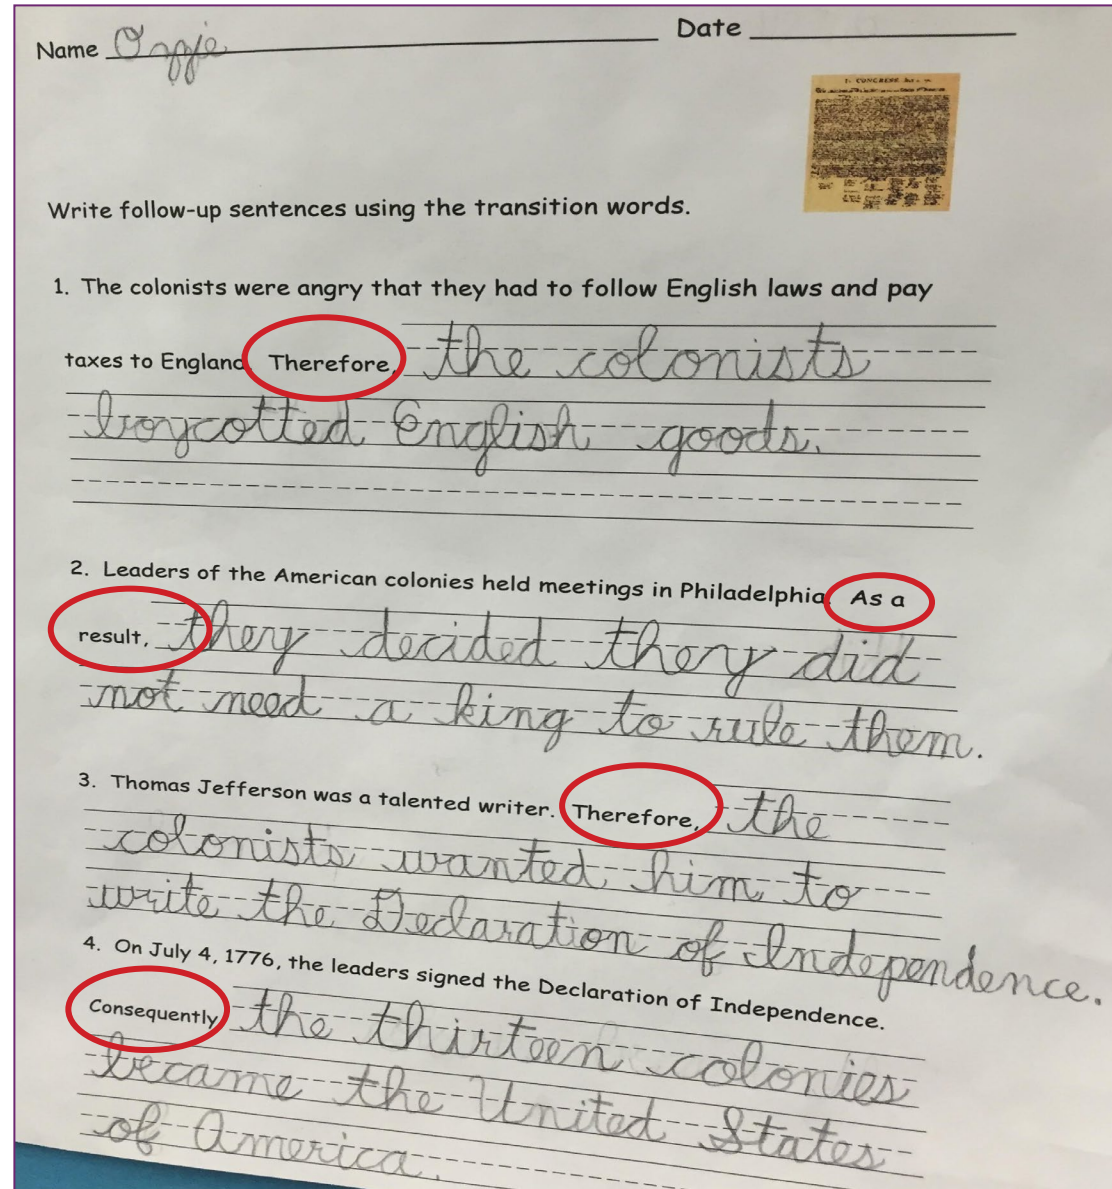 Name Ozzie Date
IN CONGRESS
Write follow-up sentences using the transition words.
1. The colonists were angry that they had to follow English laws and pay
taxes to England Therefore, the colonists
boycotted English goods.
2. Leaders of the American colonies held meetings in Philadelphia. As a
result, they decided they did
not need a king to rule them.
3. Thomas Jefferson was a talented writer. Therefore, the
colonists wanted him to
write the Declaration of Independence.
4. On July 4, 1776, the leaders signed the Declaration of Independence.
Consequently the thirteen colonies
became the United States
of America.